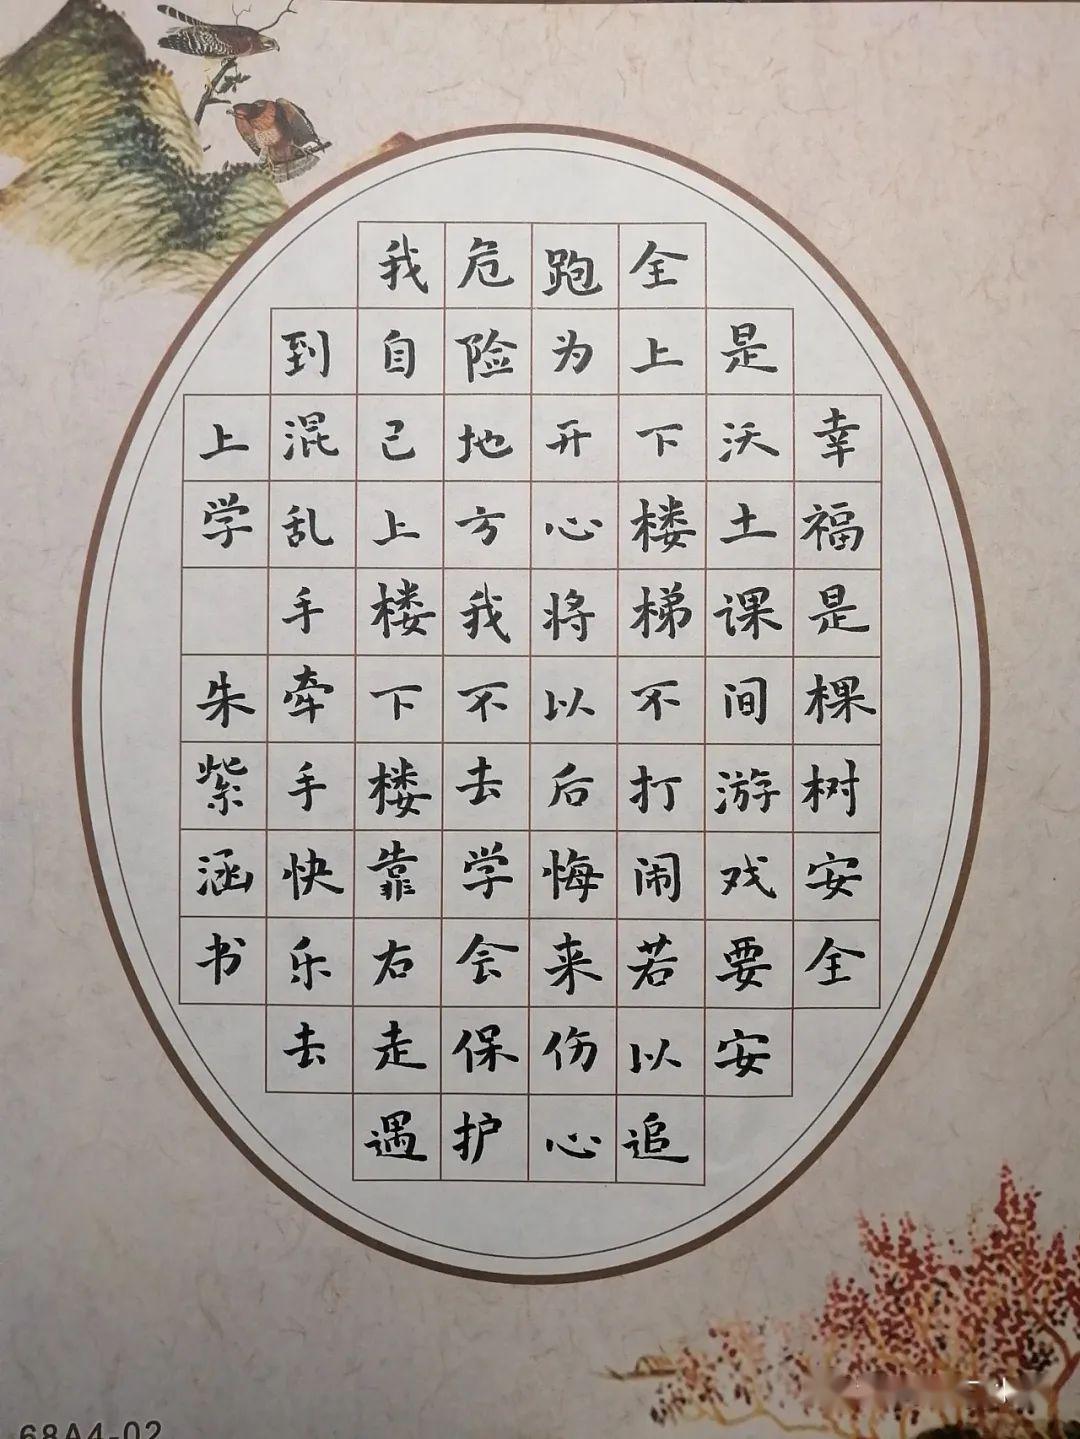 幸福是棵树安全
是沃土课间游戏要安
全上下楼梯不打闹若以追
跑为开心将以后悔来伤心
危险地方我不去学会保护
我自己上楼下楼靠右走遇
到混乱手牵手快乐去
上学 朱紫涵书
68A4-02